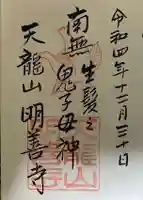 令和四年十二月三十日
生髪之
南無鬼子母神
天龍山明善寺